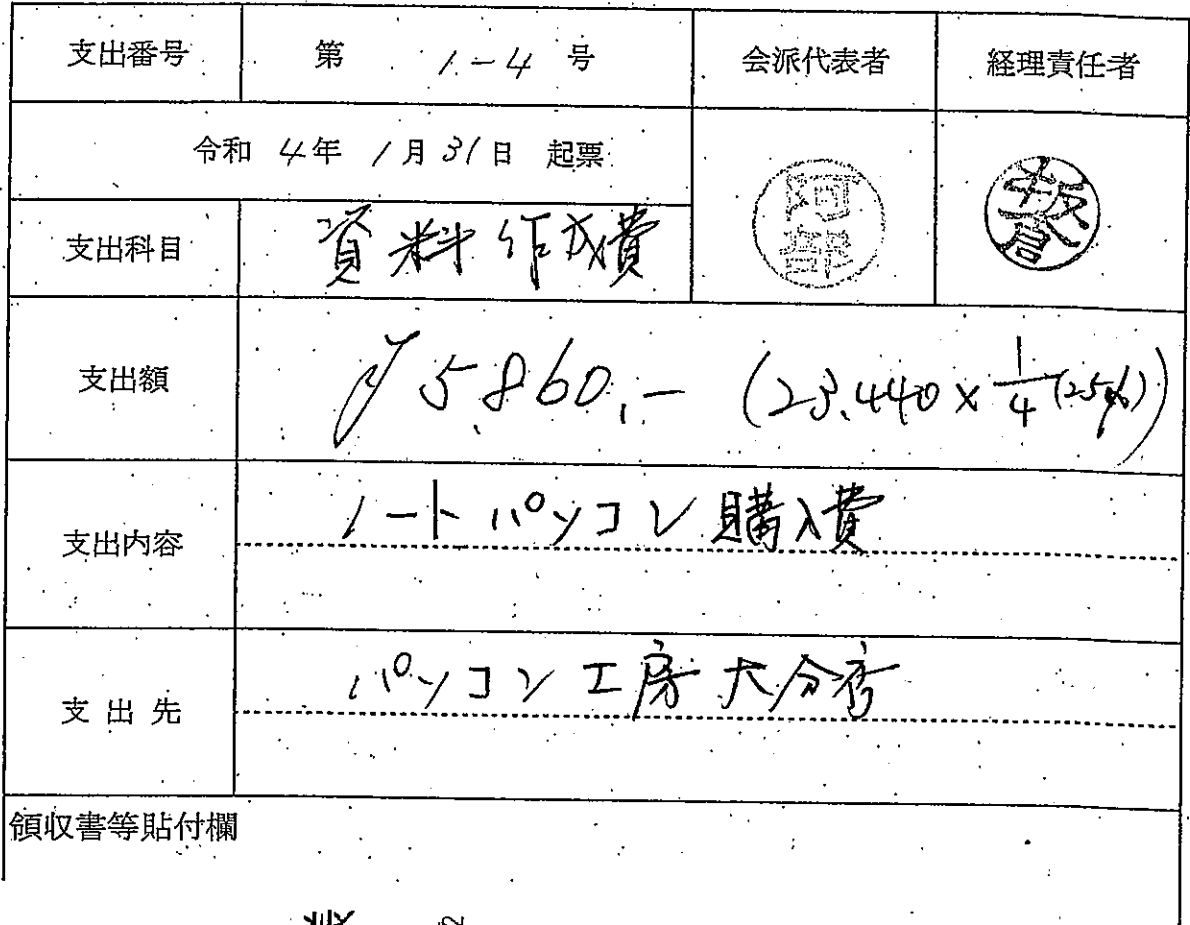 支出番号 第 1-4 号 会派代表者 経理責任者
令和 4年 1月31日 起票
阿部
板倉
支出科目 資料作成費
支出額 ¥5,860.- (23,440×1/4(25%))
支出内容 ノートパソコン購入費
支出先 パソコン工房大分店
領収書等貼付欄